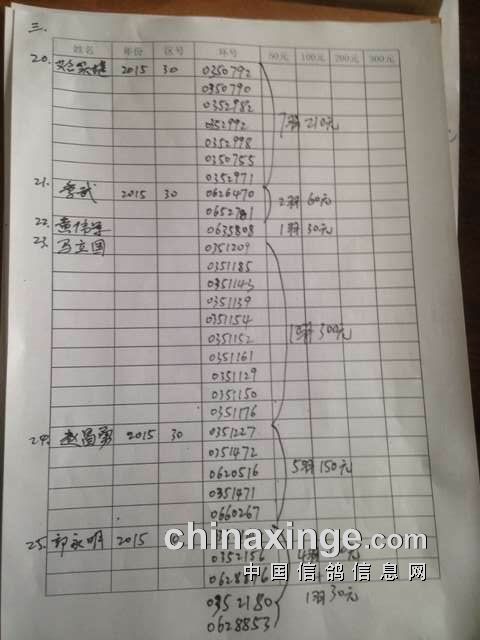 三.
姓名 年份 区号 环号 50元 100元 200元 300元
20. 2015 30 0350792
0350790
0352982
0352992 7羽 210元
0352998
0350755
0352971
21. 李武 2015 30 0626470
0652781 2羽 60元
22. 0635808 1羽 30元
23. 马立国 0351209
0351185
0351143
0351139
0351154
0351152 10羽 300元
0351161
0351129
0351150
0351176
24. 赵昌勇 2015 30 0351227
0351472
0620516 5羽 150元
0351471
0660267
25. 郭永明 2015
chinaxinge.com
0352156 4羽
中国信鸽信息网
0352180 1羽 30元
0628853